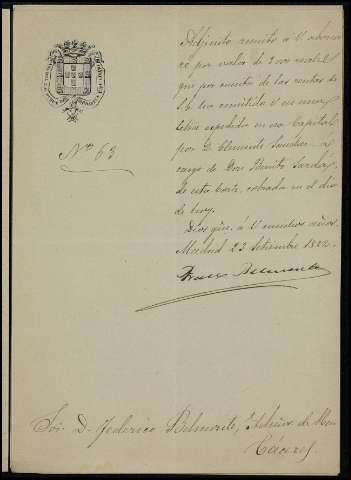 Adjunto remito á V abona
ré por valor de 2.000 reales
que por cuenta de las rentas de
S. E. ha remitido V en una
letra expedida en esa Capital
por D. Clemente Sanchez á
cargo de Don Benito
de esta Corte, cobrada en el dia
de hoy.
Dios gue. á V muchos años.
Madrid 23 Setiembre 1882
Nº 63
Sor. D. Federico Belmonte, Admor. de
Cáceres